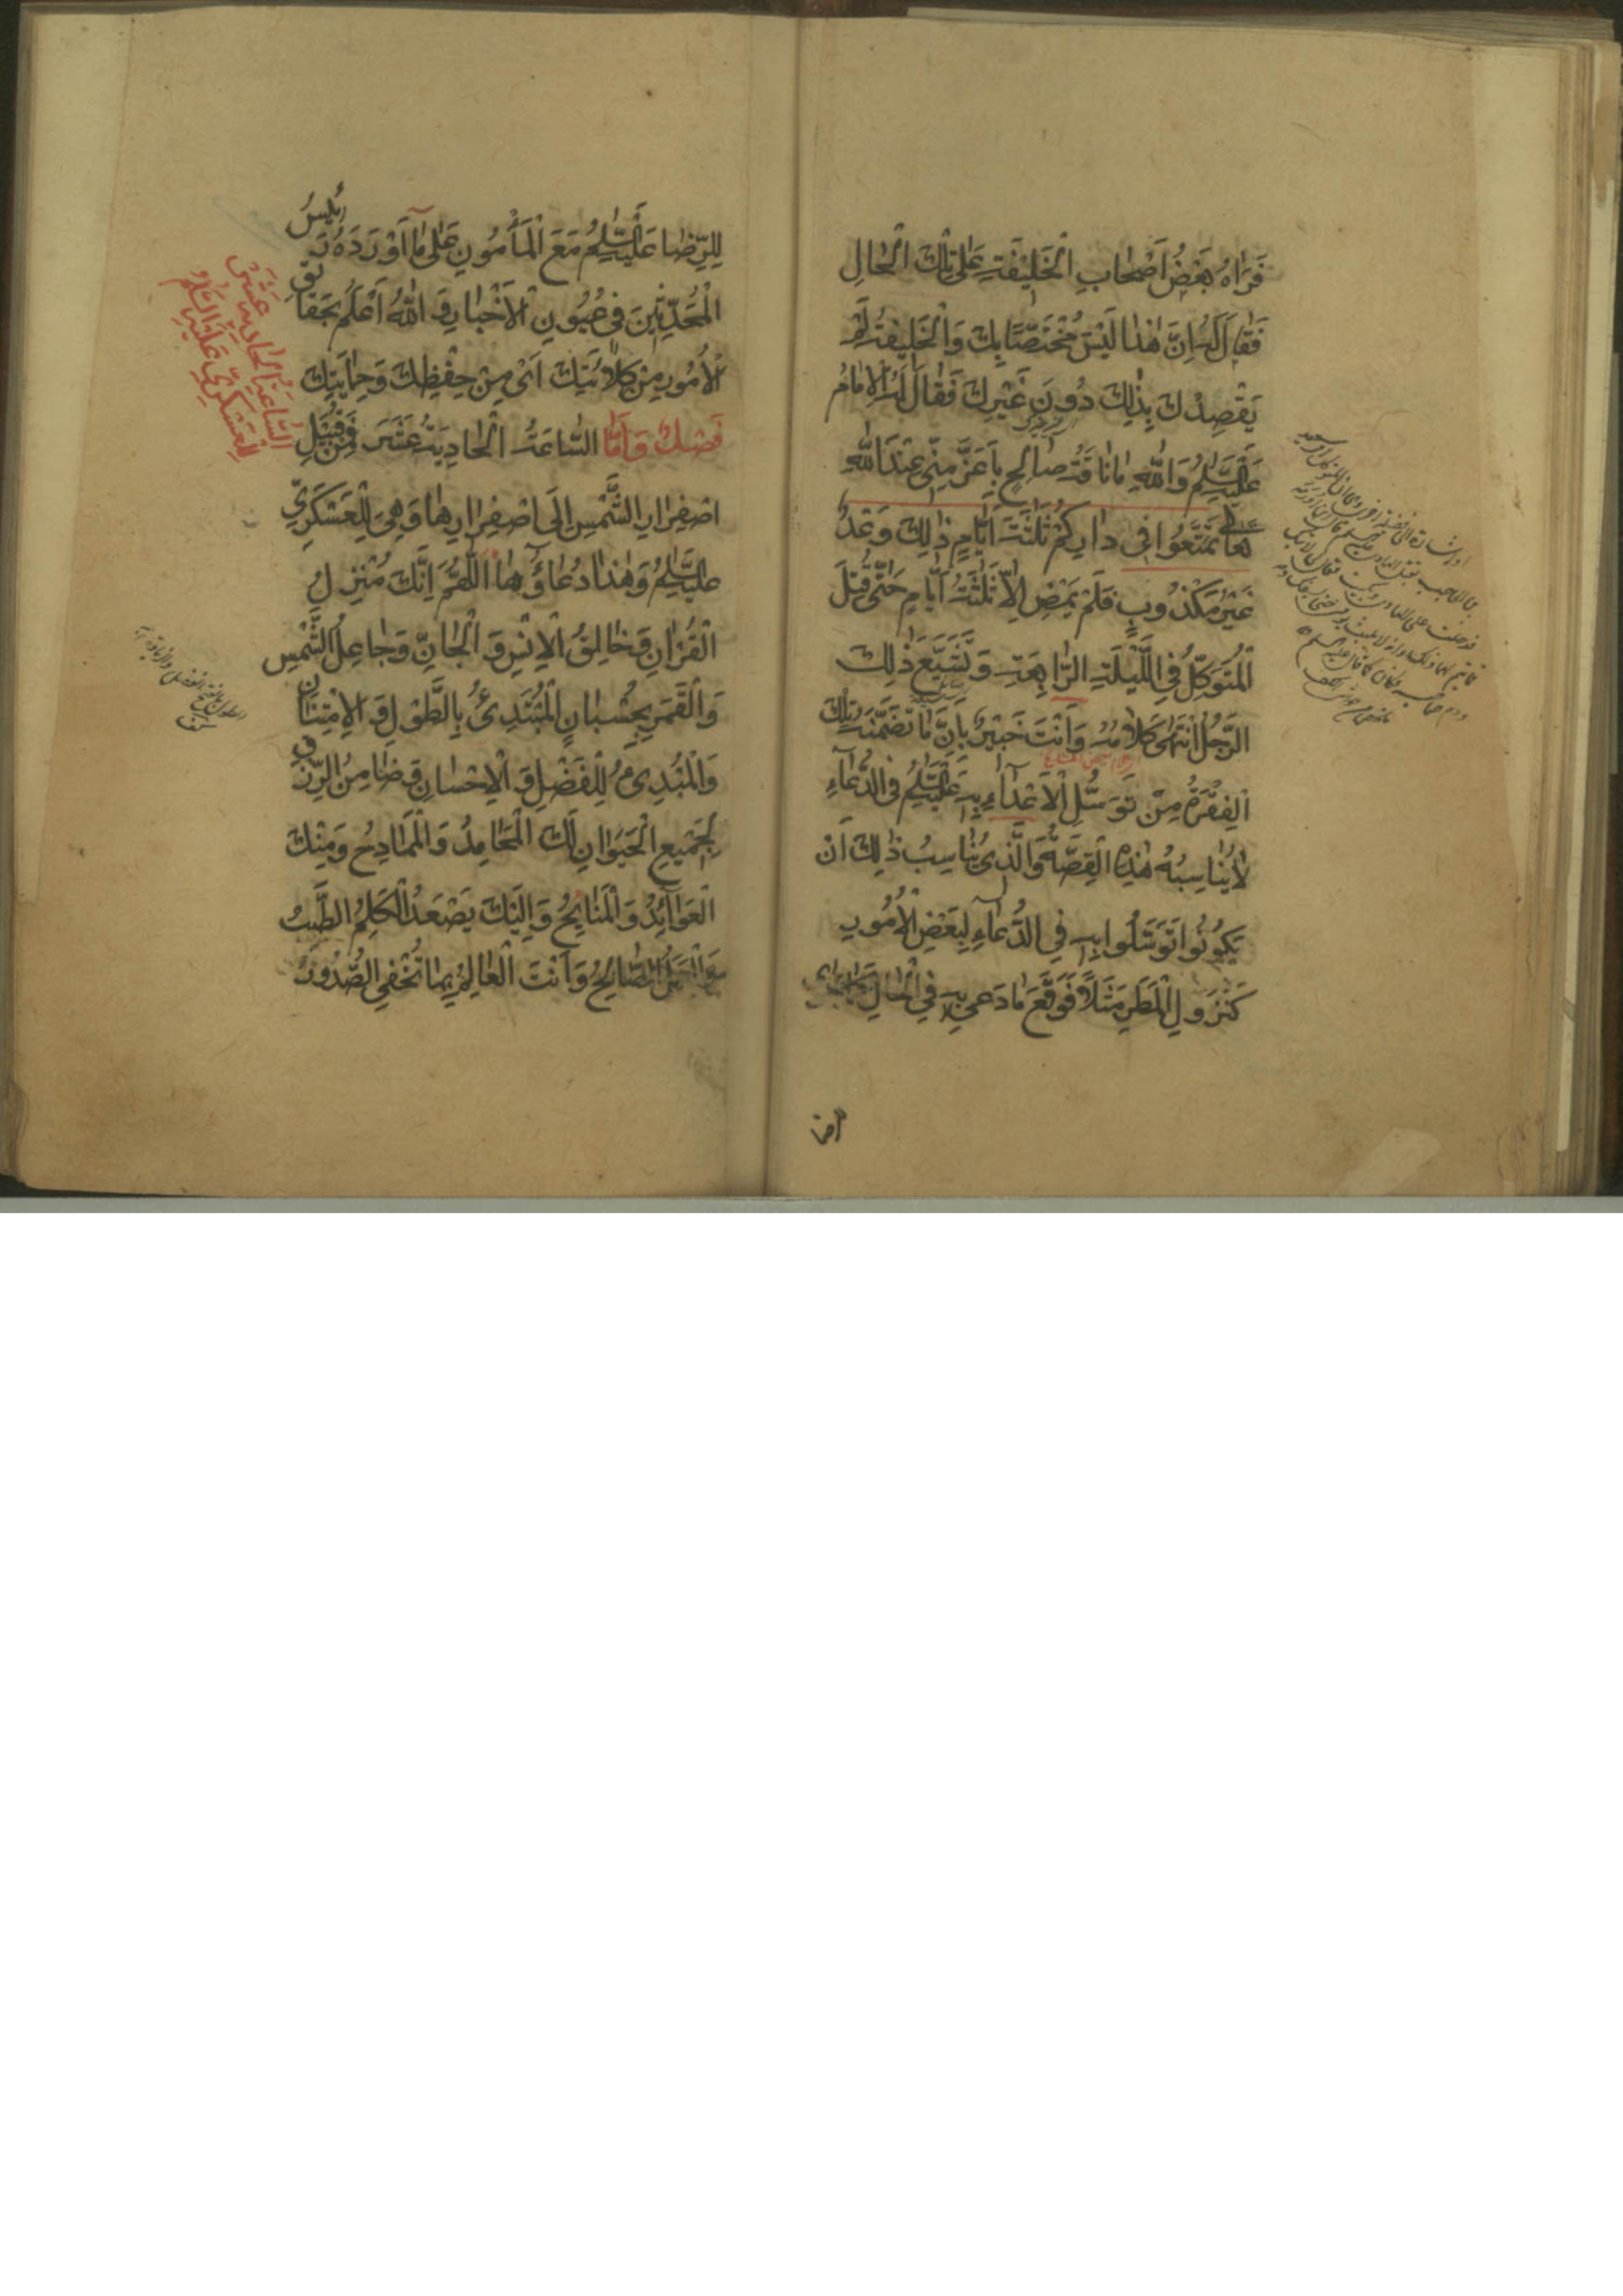 فَرَاٰهُ بَعْضُ اَصْحٰابِ الْخَلِيفَةِ عَلىٰ تِلْكَ الْحٰالِ
فَقٰالَ لَهُ اِنَّ هٰذٰا لَيْسَ مُخْتَصًّا بِكَ وَالْخَلِيفَةُ لَمْ
يَقْصِدْكَ بِذٰلِكَ دُونَ غَيْرِكَ فَقٰالَ لَهُ الْاِمٰامُ
عَلَيْهِ السَّلٰمُ وَاللّٰهِ مٰا نٰاقَةُ صٰالِحٍ بِاَعَزَّ مِنّى عِنْدَ اللّٰهِ
تَعَالٰى تَمَتَّعُوا فِى دٰارِكُمْ ثَلٰثَةَ اَيّٰامٍ ذٰلِكَ وَعْدٌ
غَيْرُ مَكْذُوبٍ فَلَمْ يَمْضِ اِلّٰا ثَلٰثَةُ اَيّٰامٍ حَتّٰى قُتِلَ
الْمُتَوَكِّلُ فِى اللَّيْلَةِ الرّٰابِعَةِ وَ ذٰلِكَ
الرَّجُلُ انْتَهىٰ كَلٰامُهُ وَاَنْتَ خَبِيْرٌ بِاَنَّ مٰا تَضَمَّنَتْهُ تِلْكَ
الْفِقْرَةُ مِنْ تَوَسُّلِ الْاَعْدٰاءِ بِهِ عَلَيْهِ السَّلٰمُ فِى الدُّعٰاءِ
لٰا يُنٰاسِبُهُ هٰذِهِ الْقِصَّةُ وَالَّذِى يُنٰاسِبُ ذٰلِكَ اَنْ
يَكُونُوا تَوَسَّلُوا بِهِ فِى الدُّعٰاءِ لِبَعْضِ الْاُمُورِ
كَنُزُولِ الْمَطَرِ مَثَلًا فَوَقَعَ مٰا دَعىٰ بِهِ فِى الْحٰالِ
لِلرِّضٰا عَلَيْهِ السَّلٰمُ مَعَ الْمَأْمُونِ عَلىٰ مٰا اَوْرَدَهُ رَئِيسُ
الْمُحَدِّثِينَ فِى عُيُونِ الْاَخْبٰارِ وَ اللّٰهُ اَعْلَمُ بِحَقٰايِقِ
الْاُمُورِ مِنْ كَلٰائَتِكَ اَىْ مِنْ حِفْظِكَ وَحِمٰايَتِكَ
فَصْلٌ وَاَمَّا السّٰاعَةُ الْحٰادِيَةُ عَشَرَ فَمِنْ قُبَيْلِ
اصْفِرٰارِ الشَّمْسِ اِلَى اصْفِرٰارِهٰا وَهِىَ لِلْعَسْكَرِىِّ
عَلَيْهِ السَّلٰمُ وَهٰذٰا دُعٰاؤُهٰا اَللّٰهُمَّ اِنَّكَ مُنْزِلُ
الْقُرْاٰنِ وَخٰالِقُ الْاِنْسِ وَ الْجٰانِّ وَجٰاعِلُ الشَّمْسِ
وَالْقَمَرِ بِحُسْبٰانٍ الْمُبْتَدِئُ بِالطَّوْلِ وَ الْاِمْتِنٰانِ
وَالْمُبْدِئُ لِلْفَضْلِ وَ الْاِحْسٰانِ وَضٰامِنُ الرِّزْقِ
لِجَمِيعِ الْحَيَوٰانِ لَكَ الْمَحٰامِدُ وَالْمَمٰادِحُ وَمِنْكَ
الْعَوٰائِدُ وَالْمَنٰايِحُ وَاِلَيْكَ يَصْعَدُ الْكَلِمُ الطَّيِّبُ
وَالْعَمَلُ الصّٰالِحُ وَاَنْتَ الْعٰالِمُ بِمٰا تُخْفِى الصُّدُورُ
السّٰاعَةُ الْحٰادِيَةُ عَشَرَ
لِلْعَسْكَرِىِّ عَلَيْهِ السَّلٰامُ